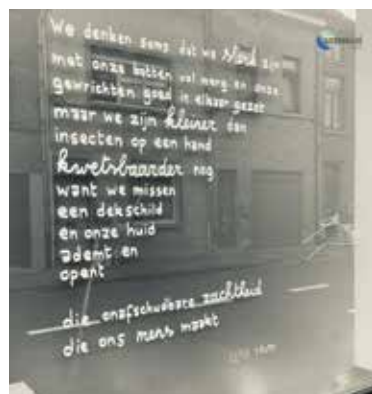 We denken soms dat we sterk zijn
met onze botten vol merg en onze
gewrichten goed in elkaar gezet
maar we zijn kleiner dan
insecten op een hand
kwetsbaarder nog
want we missen
een dekschild
en onze huid
ademt en
opent
die onafschudbare zachtheid
die ons mens maakt